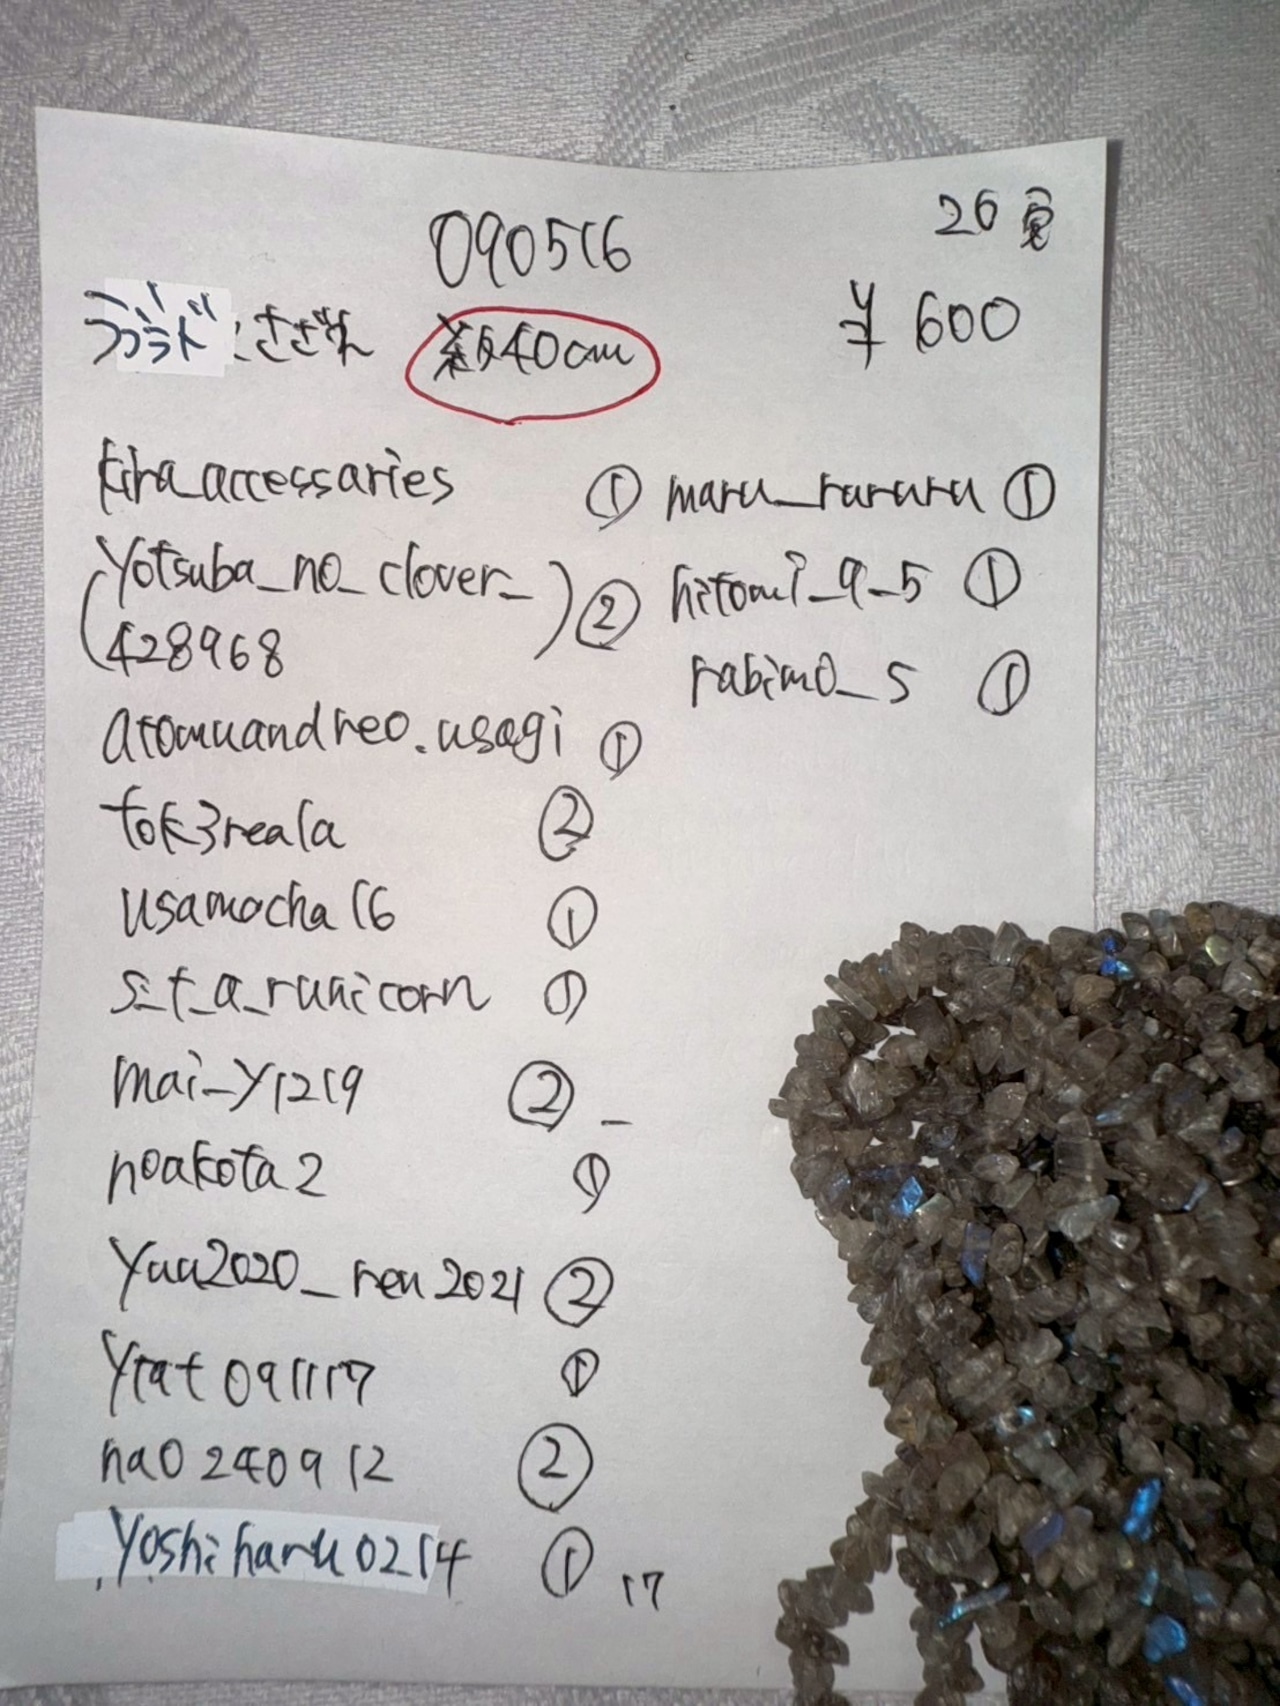 090516
20
ラブラド さざれ 約40cm
¥600
kira_accessaries ①
yotsuba_no_clover_
428968 ②
atomuandreo.usagi ①
tok3reala ②
usamocha16 ①
s_t_a_runicorn ①
mai_y1219 ②
noakota2 ①
yuu2020_ren2021 ②
ytat091117 ①
nao240912 ②
yoshiharu0214 ① 17
maru_rururu ①
hitomi_9_5 ①
rabimo_5 ①